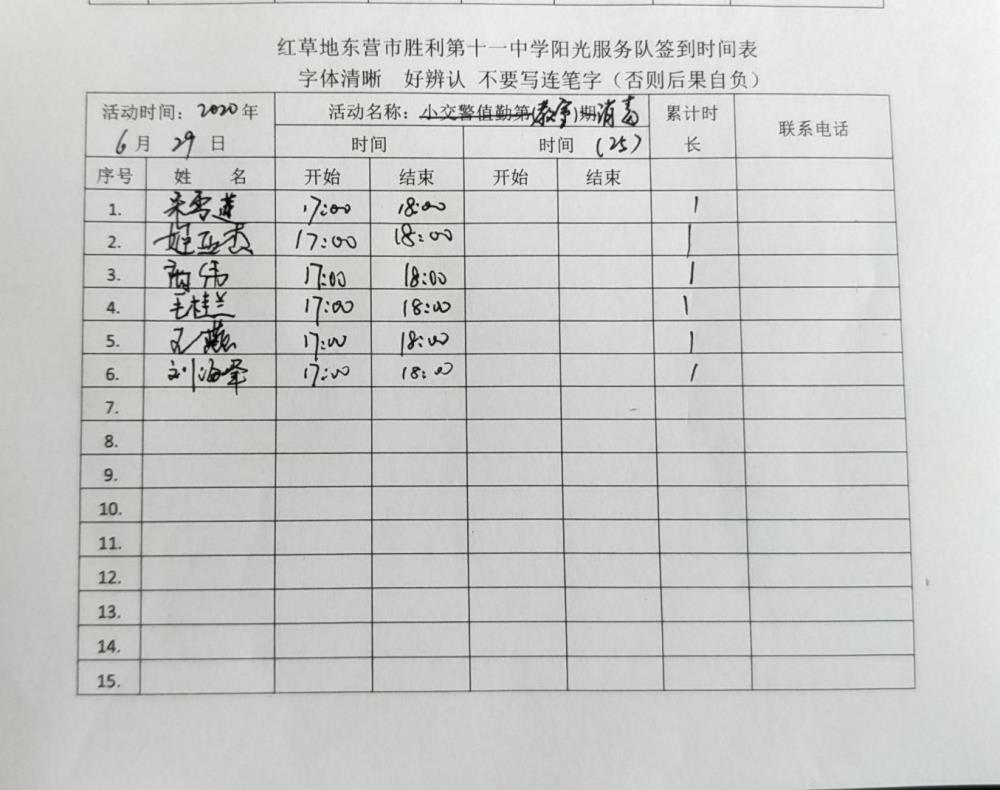 红草地东营市胜利第十一中学阳光服务队签到时间表
字体清晰 好辨认 不要写连笔字（否则后果自负）
活动时间：2020年 活动名称：小交警值勤第(教室)期消毒 累计时长 联系电话
6月29日 时间 时间 (25)
序号 姓 名 开始 结束 开始 结束
1. 宋雪莲 17:00 18:00 1
2. 姬亚杰 17:00 18:00 1
3. 伟 17:00 18:00 1
4. 毛桂兰 17:00 18:00 1
5. 王燕 17:00 18:00 1
6. 刘海峰 17:00 18:00 1
7.
8.
9.
10.
11.
12.
13.
14.
15.